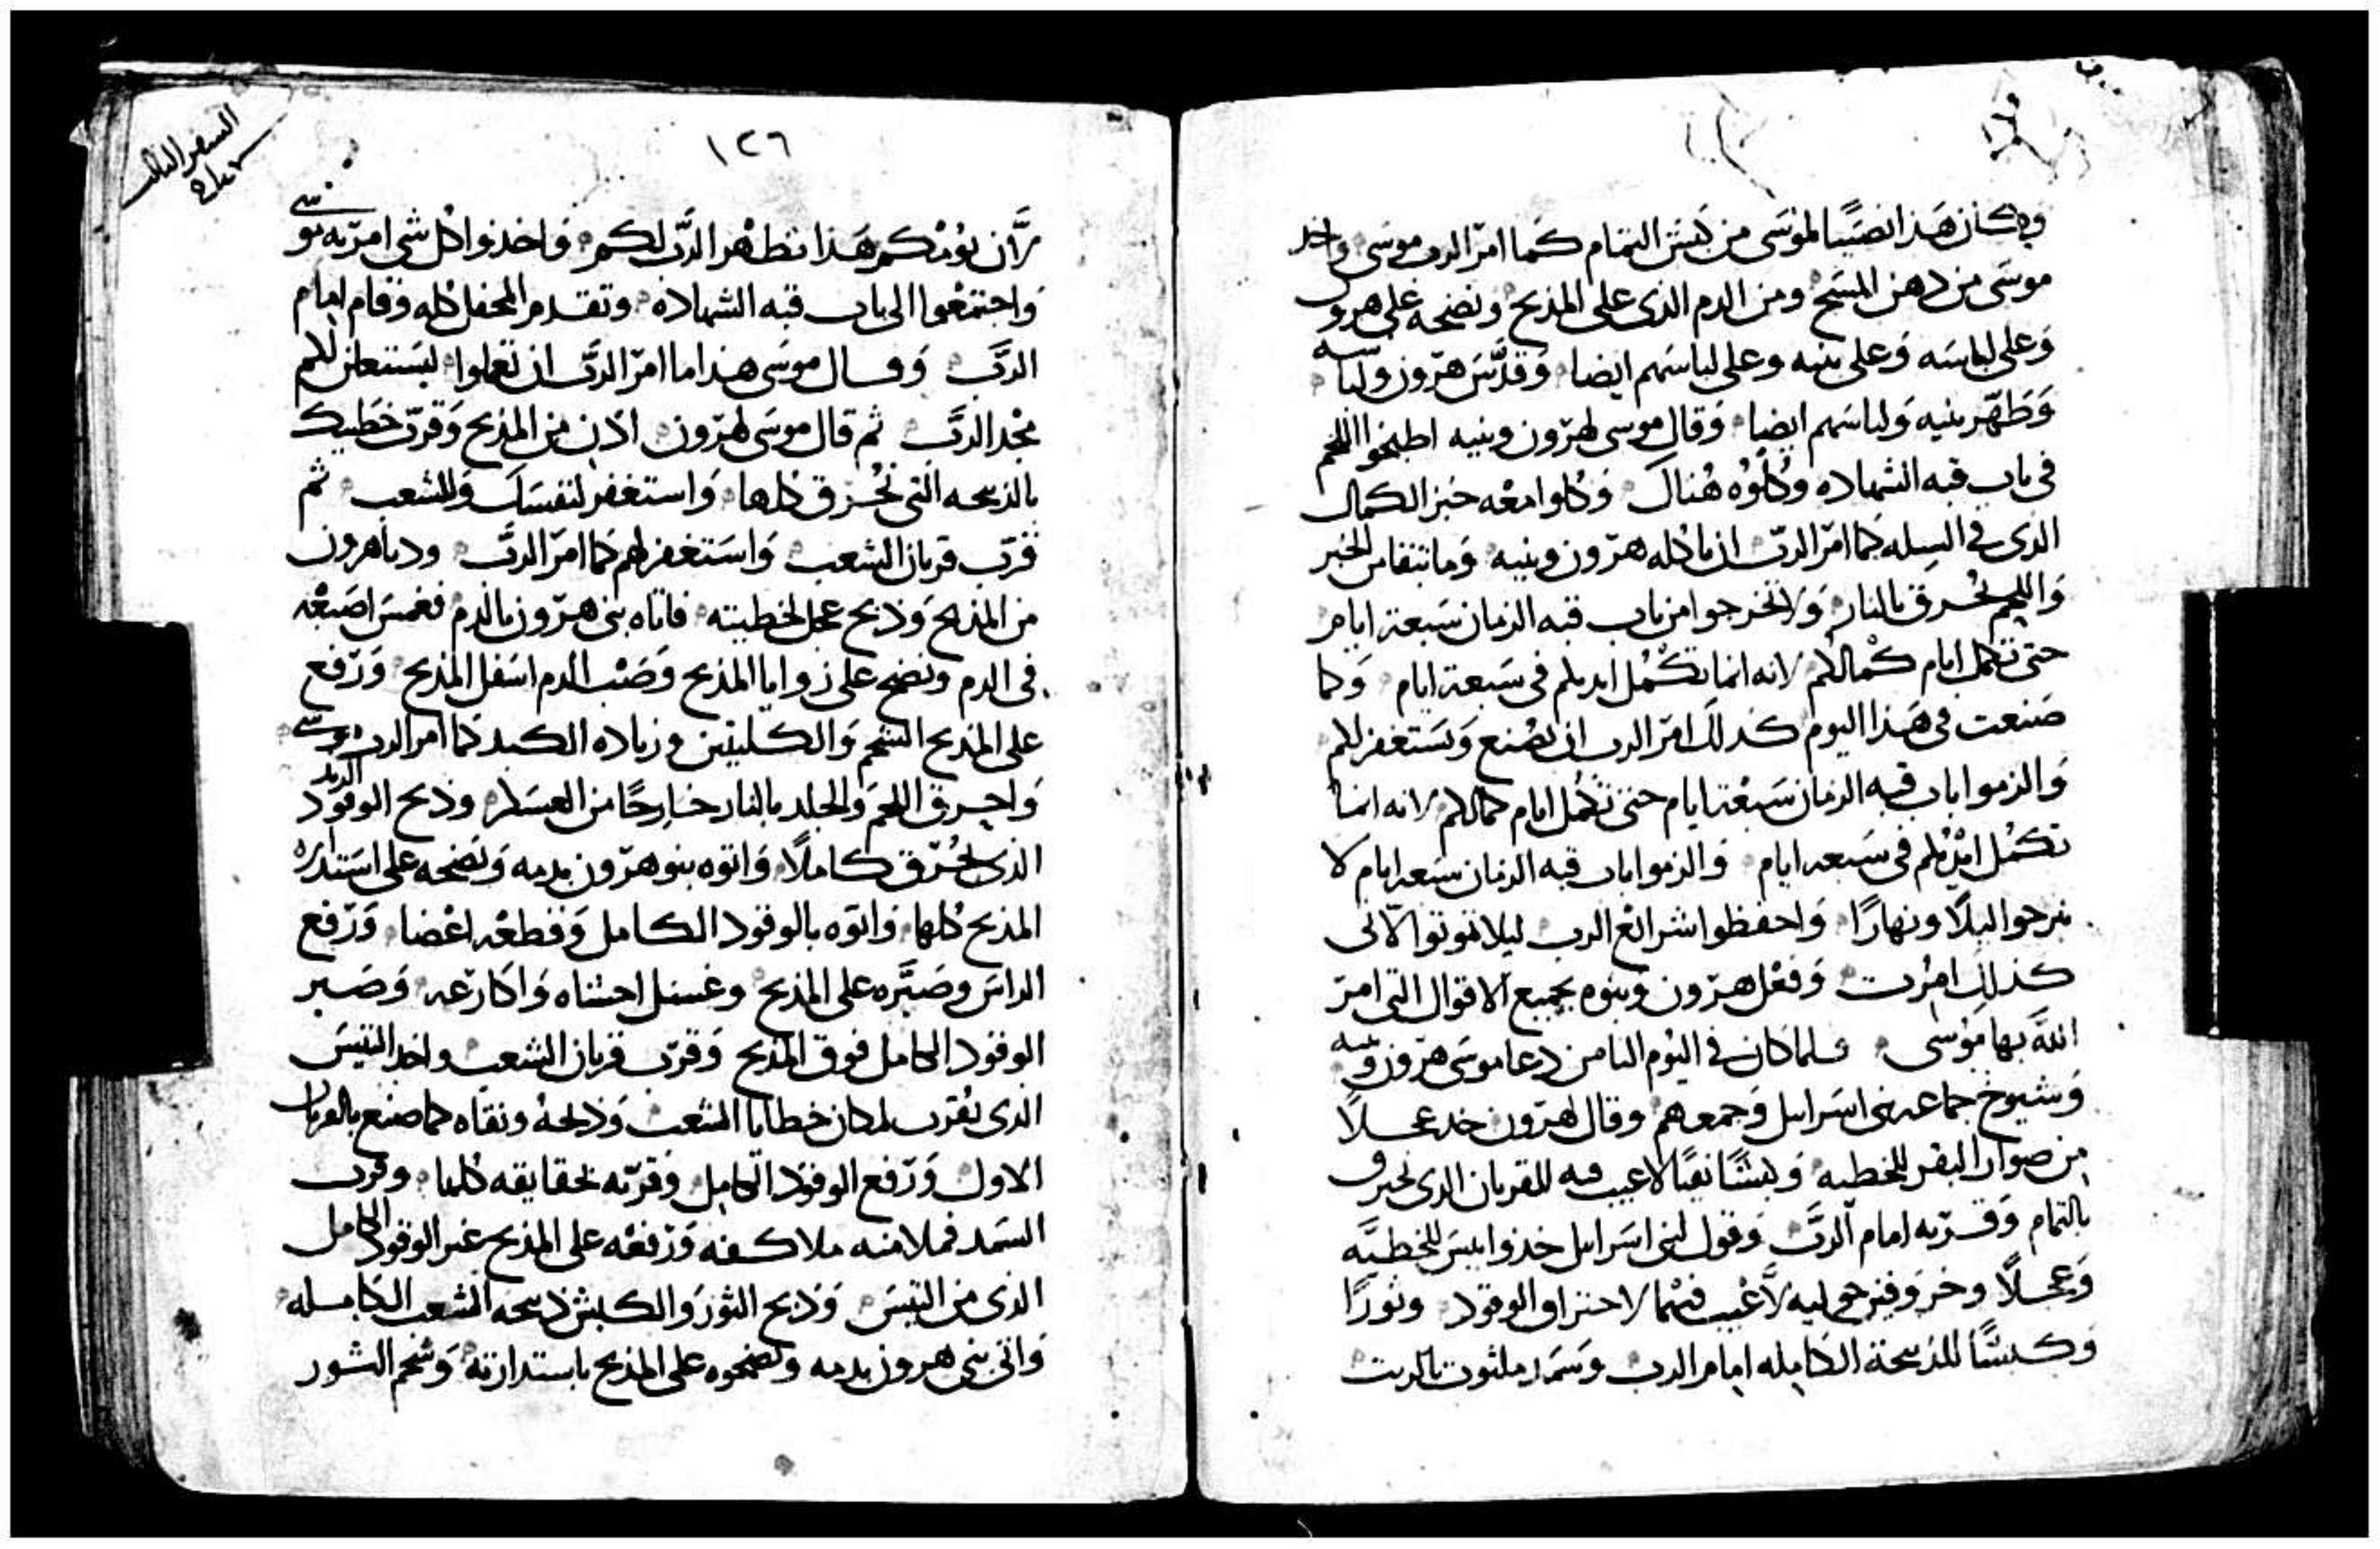 وكان هذا نصيبا لموسى من كبش التمام كما امر الرب موسى واخد
موسى من دهن المسح ومن الدم الذى على المذبح ونضحه على هرون
وعلى لباسه وعلى بنيه وعلى لباسهم ايضا وقدس هرون ولباسه
وطهر بنيه ولباسهم ايضا وقال موسى لهرون وبنيه اطبخوا اللحم
فى باب قبه الشهاده وكلوه هناك وكلوا معه خبز الكمال
الذى فى السله كما امر الرب ان ياكله هرون وبنيه وما تبقا من الخبز
واللحم يحرق بالنار ولا تخرجوا من باب قبه الزمان سبعة ايام
حتى تكمل ايام كمالكم لانه انما تكمل ايديكم فى سبعة ايام وكما
صنعت فى هذا اليوم كذلك امر الرب ان يصنع ويستغفر لكم
والزموا باب قبه الزمان سبعة ايام حتى تكمل ايام كمالكم لانه انما
تكمل ايديكم فى سبعه ايام والزموا باب قبه الزمان سبعه ايام لا
تبرحوا ليلا ونهارا واحفظوا شرائع الرب ليلا تموتوا لانى
كذلك امرت وفعل هرون وبنوه بجميع الاقوال التى امر
الله بها موسى فلما كان فى اليوم الثامن دعا موسى هرون وبنيه
وشيوخ جماعه بنى اسرايل وجمعهم وقال لهرون خد عجلا
من صوار البقر للخطيه وكبشا نقيا لا عيب فيه للقربان الذى يحرق
بالتمام وقربه امام الرب وقول لبنى اسرايل خذوا تيس للخطيه
وعجلا وخروف حولیه لا عيب فيهما لاحتراق الوقود وثورا
وكبشا للذبيحة الكامله امام الرب وسمد ملثوت بالزيت
١٢٦
السفر الثالث
لان يومكم هذا تطهر الرب لكم واخذوا كل شى امر به موسى
واجتمعوا الى باب قبه الشهاده وتقدم المحفل كله وقام امام
الرب وقال موسى هذا ما امر الرب ان تعملوا ليستعلن لكم
مجد الرب ثم قال موسى لهرون ادن من المذبح وقرب خطيتك
بالذبيحه التى تحرق كلها واستغفر لنفسك وللشعب ثم
قرب قربان الشعب واستغفر لهم كما امر الرب ودنا هرون
من المذبح وذبح عجل لخطيته فاتاه بنى هرون بالدم فغمس اصبعه
فى الدم ونضح على زوايا المذبح وصب الدم اسفل المذبح ورفع
على المذبح الشحم والكليتين وزياده الكبد كما امر الرب موسى
واحرق اللحم والجلد بالنار خارجا من العسكر وذبح الوقود
الذى يحرق كاملا واتوه بنو هرون بدمه ونضحه على استداره
المذبح كلها واتوه بالوقود الكامل وقطعه اعضا ورفع
الراس وصيره على المذبح وغسل احشاه واكارعه وصير
الوقود الكامل فوق المذبح وقرب قربان الشعب واخد التيس
الذى يقرب لمكان خطايا الشعب وذبحه ونقاه كما صنع بالقربان
الاول ورفع الوقود الكامل وقربه بحقايقه كلها وقرب
السمد فملا منه ملا كفه ورفعه على المذبح غير الوقود الكامل
الذى من التيس وذبح الثور والكبش ذبيحه الشعب الكامله
واتى بنى هرون بدمه ونضحوه على المذبح باستدارته وشحم الثور